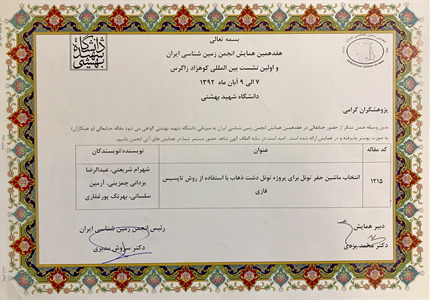 بسمه تعالی
هفدهمین همایش انجمن زمین شناسی ایران
و اولین نشست بین المللی کوهزاد زاگرس
۷ الی ۹ آبان ماه ۱۳۹۲
دانشگاه شهید بهشتی
پژوهشگران گرامی
بدین وسیله ضمن تشکر از حضور جنابعالی در هفدهمین همایش انجمن زمین شناسی ایران به میزبانی دانشگاه شهید بهشتی گواهی می شود مقاله جنابعالی (و همکاران)
به صورت پوستر پذیرفته و در همایش ارائه شده است. امید است در سایه الطاف الهی شاهد حضور مستمر شما در همایش های آتی انجمن باشیم
کد مقاله عنوان نویسنده/نویسندگان
۱۲۱۵ انتخاب ماشین حفر تونل برای پروژه تونل دشت ذهاب با استفاده از روش تاپسیس
فازی
شهرام شریعتی، عبدالرضا
یزدانی چمزینی، آرمین
سلسانی، بهرنگ پورغفاری
دبیر همایش رئیس انجمن زمین شناسی ایران
دکتر محمد یزدی دکتر سروش مدبری